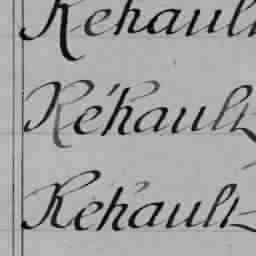 Rehault
Réhault
Rehault